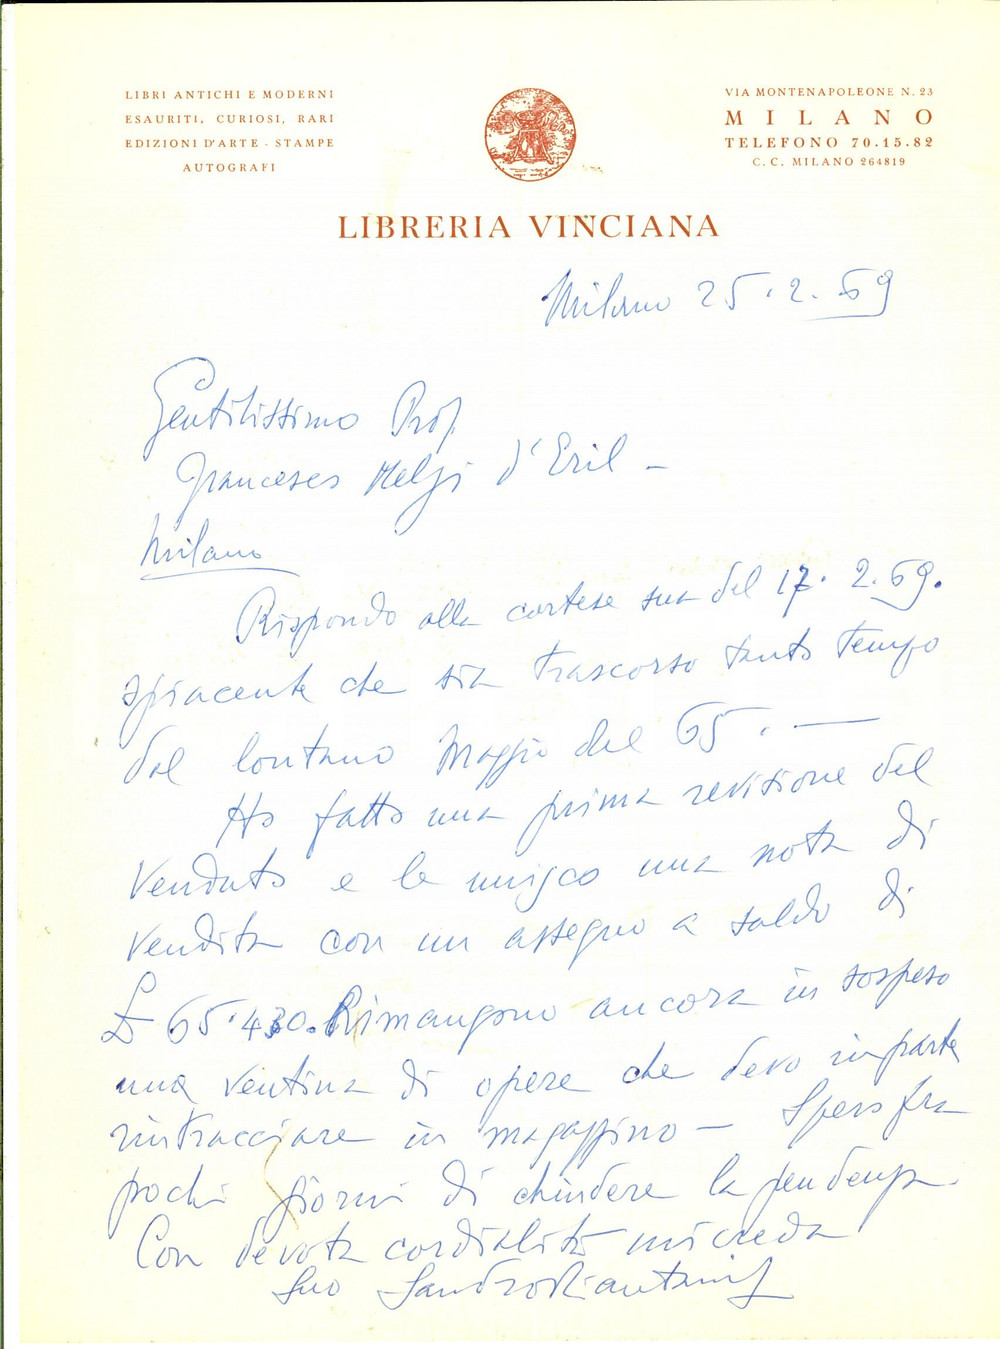 LIBRI ANTICHI E MODERNI
ESAURITI, CURIOSI, RARI
EDIZIONI D'ARTE - STAMPE
AUTOGRAFI
VIA MONTENAPOLEONE N. 23
MILANO
TELEFONO 70.15.82
C. C. MILANO 264819
LIBRERIA VINCIANA
Milano 25.2.69
Gentilissimo Prof
Francesco Melzi d'Eril -
Milano
Rispondo alla cortese sua del 17.2.69.
spiacente che sia trascorso tanto tempo
dal lontano Maggio del 65. —
Ho fatto una prima revisione del
venduto e le unisco una nota di
vendita con un assegno a saldo di
£ 65.430. Rimangono ancora in sospeso
una ventina di opere che devo in parte
rintracciare in magazzino - Spero fra
pochi giorni di chiudere la pendenza.
Con devota cordialità mi creda
Suo Sandro Piantanida